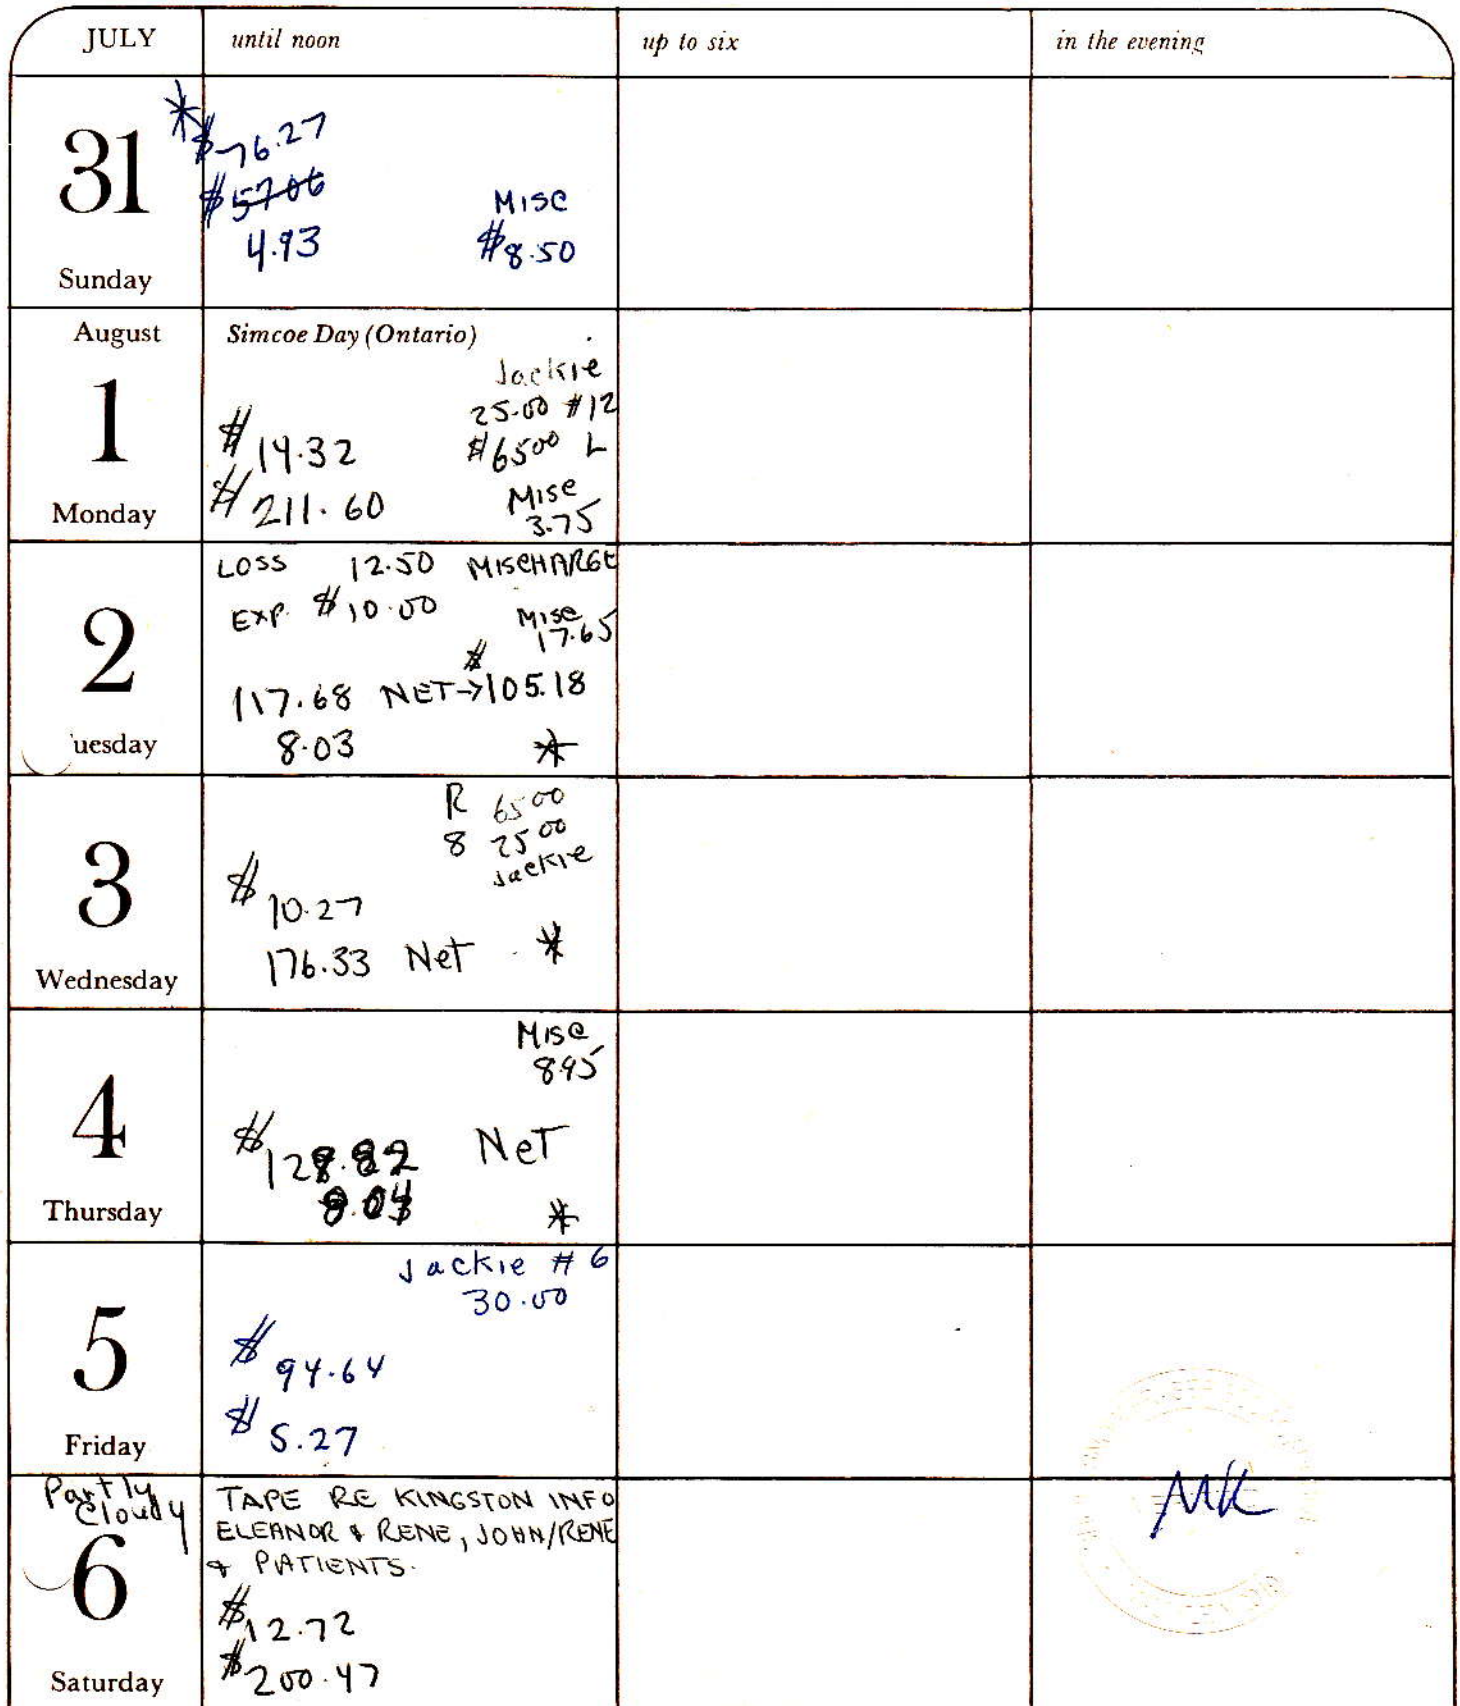 JULY until noon up to six in the evening
31
Sunday
*
$76.27
$57.06
4.93
Misc
$8.50
August
1
Monday
Simcoe Day (Ontario)
Jackie
25.00 #12
$65.00 L
$14.32
$211.60
Misc
3.75
2
uesday
LOSS 12.50 MISCHARGE
EXP. $10.00
Misc
17.65
$
117.68 NET→105.18
8.03 *
3
Wednesday
R 65.00
8 25.00
Jackie
$10.27
176.33 Net *
4
Thursday
Misc
8.95
$128.82 Net
8.04 *
5
Friday
Jackie #6
30.00
$94.64
$5.27
Partly
Cloudy
6
Saturday
TAPE RE KINGSTON INFO
ELEANOR & RENE, JOHN/RENE
& PATIENTS.
$12.72
$200.47
MK